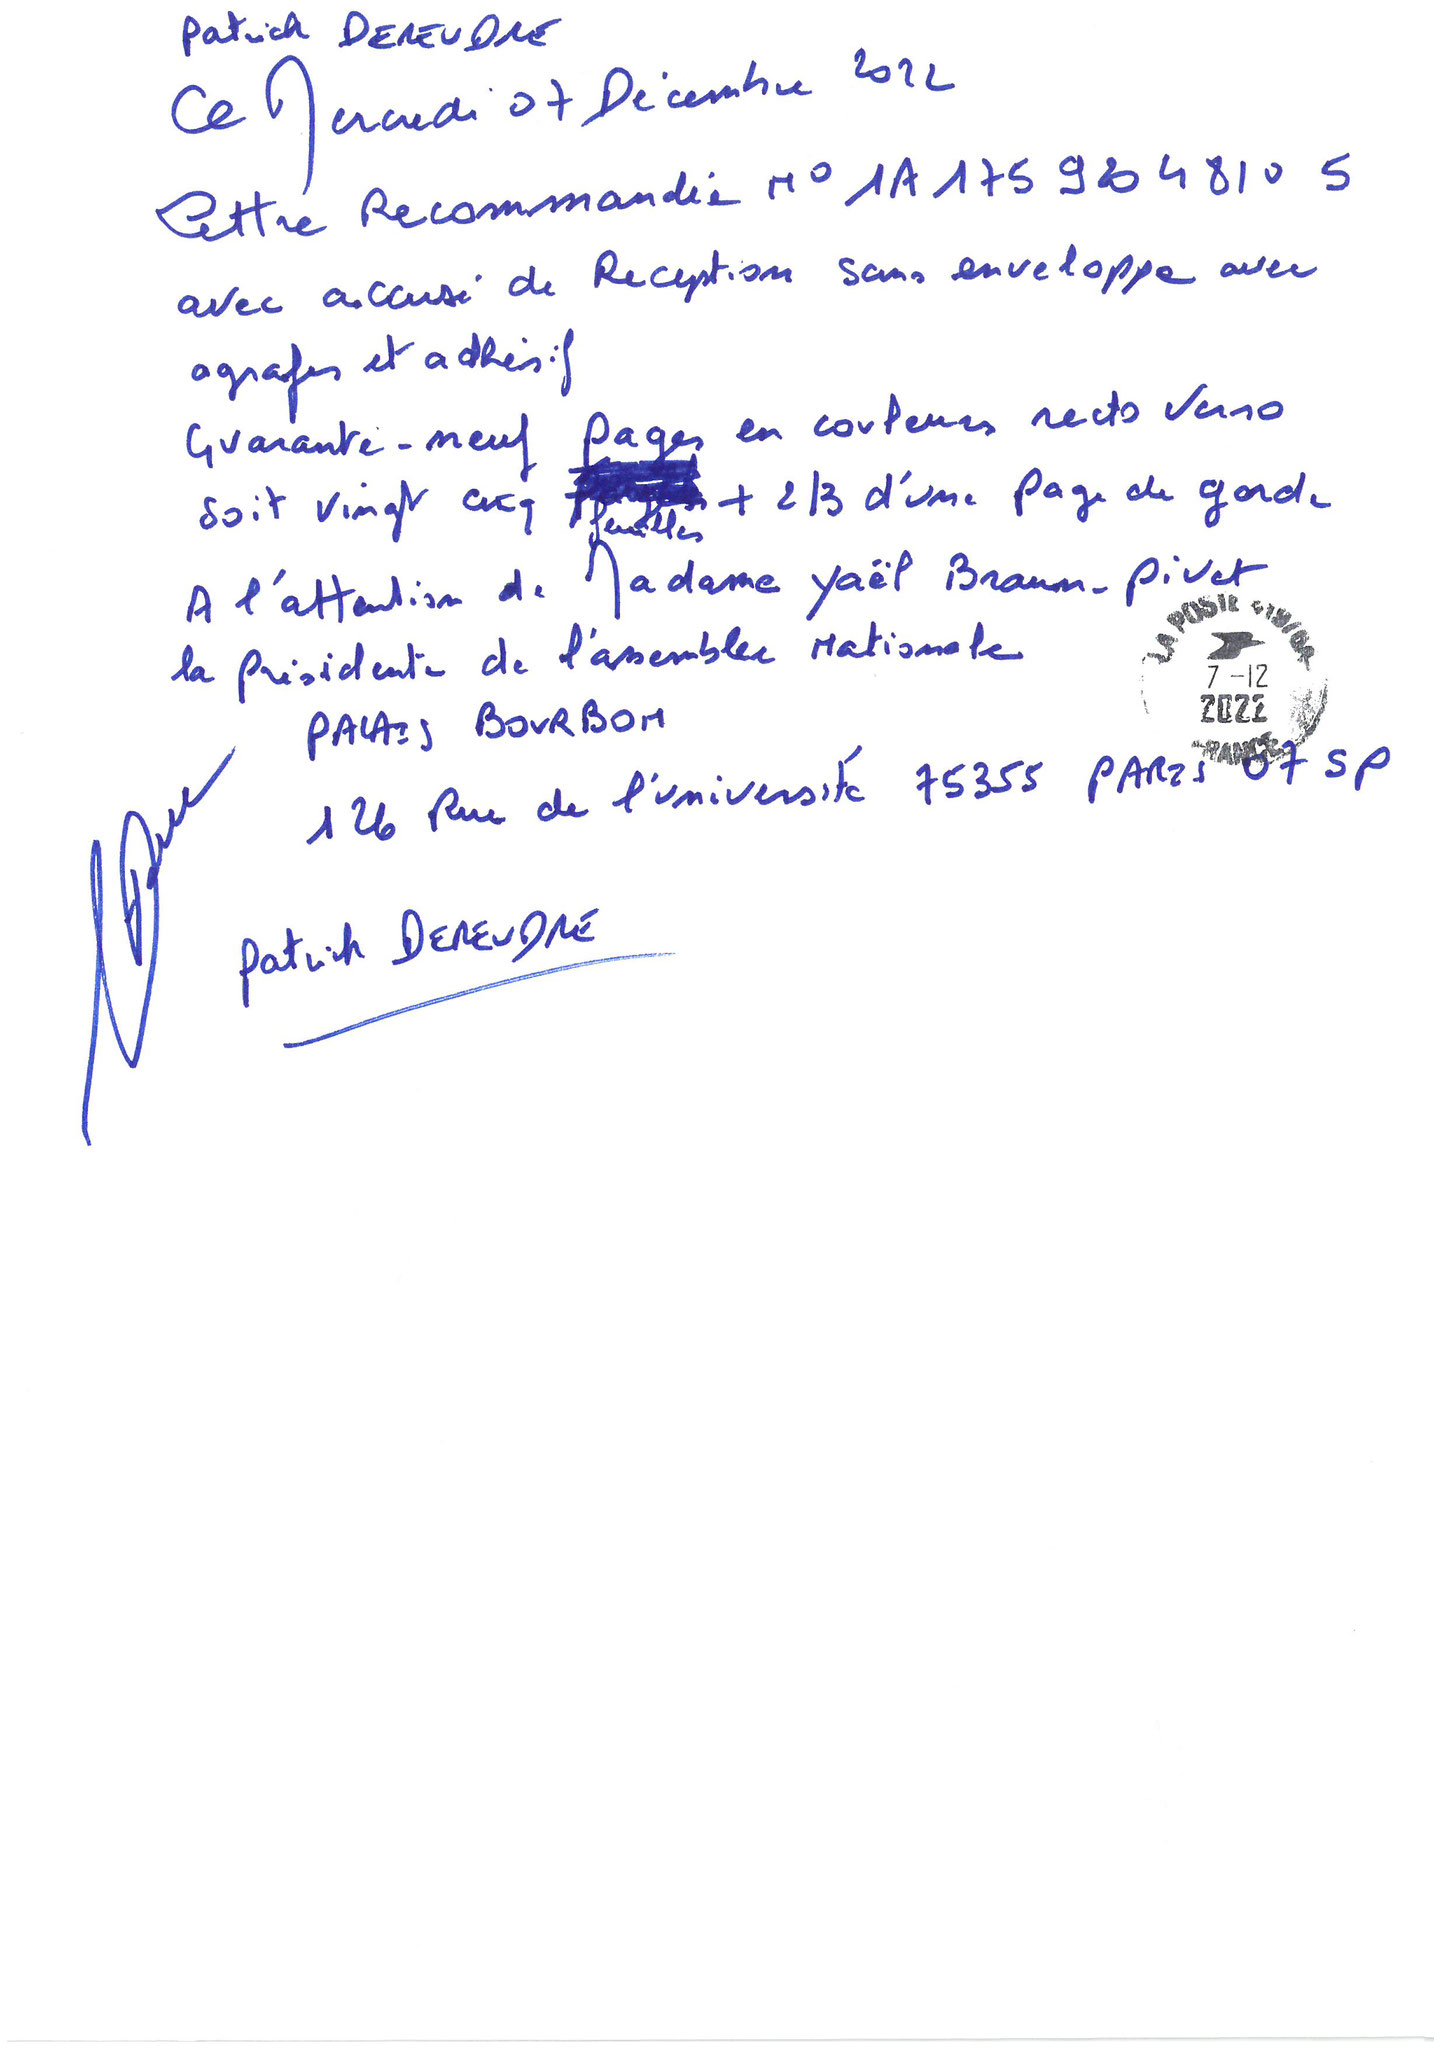 Patrick DEREUDRE
Ce Mercredi 07 Décembre 2022
Lettre Recommandée N° 1A 175 920 4810 5
avec accusé de Reception sans enveloppe avec
agrafes et adhésif
Quarante-neuf pages en couleurs recto verso
soit vingt cinq feuilles + 2/3 d'une page de garde
A l'attention de Madame Yaël Braun-Pivet
la présidente de l'assemblee Nationale
PALAIS BOURBON
126 Rue de l'université 75355 PARIS 07 SP
LA POSTE
7-12
2022
FRANCE
Patrick DEREUDRE